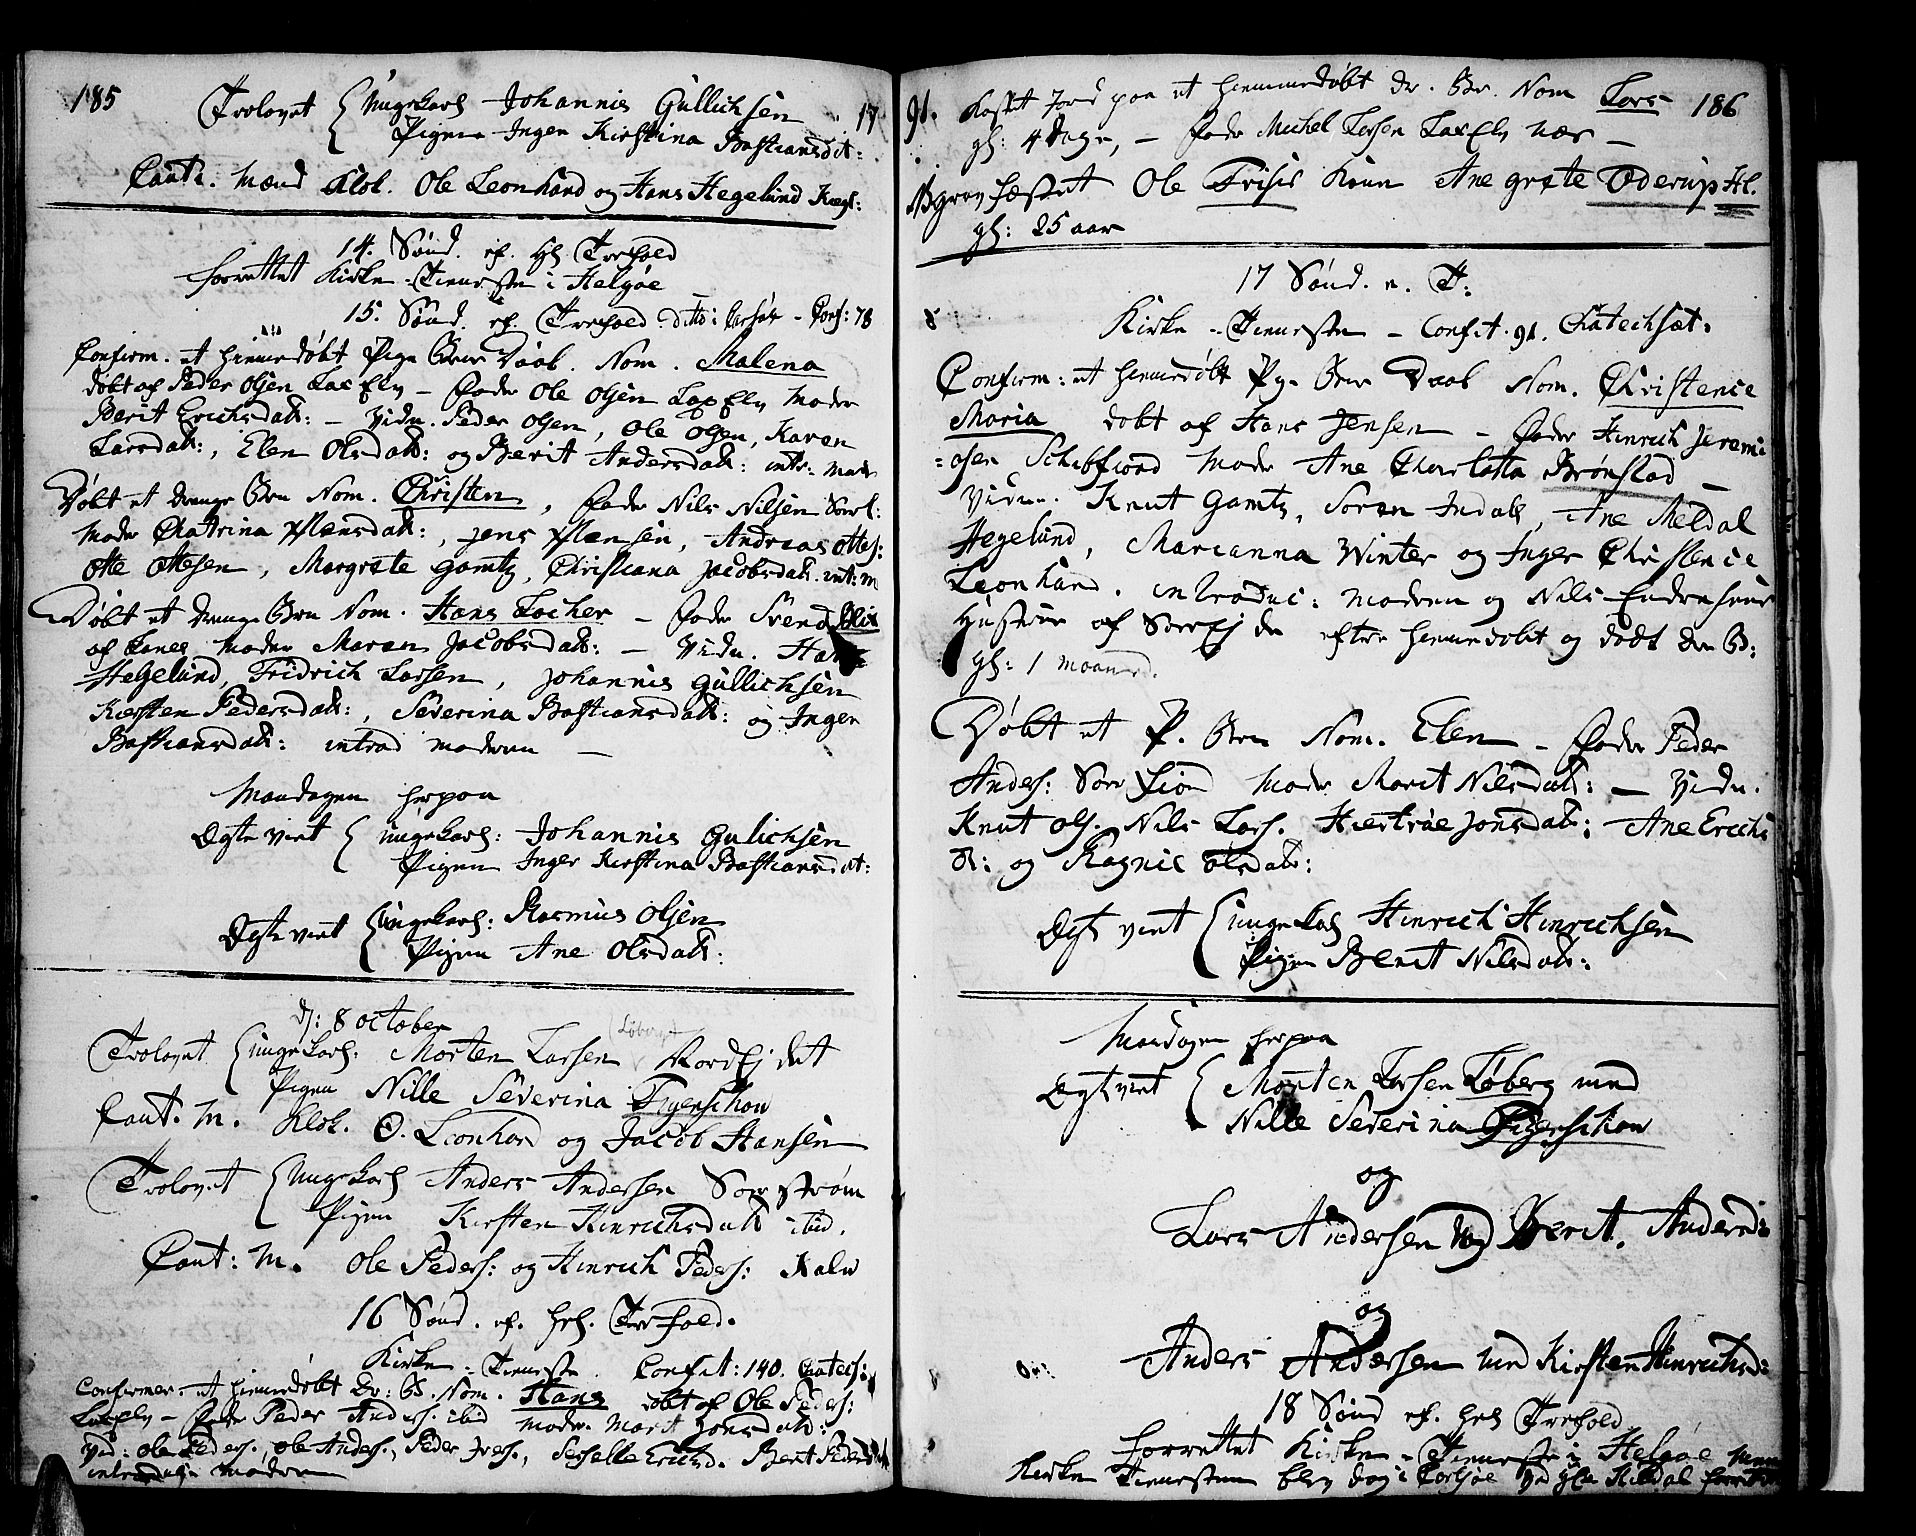 185
Trolovet { Ungekarl Johannis Gullichsen 17
Pigen Inger Kirstina Bastiansdat:
Caut. Mænd Klok. Ole Leonhard og Hans Hegelund
14. Sønd. ef. Hl Trefold
forrettet Kirke-Tienesten i Helgøe
15. Sønd. ef. Trefold. ditto i Carlsøe - Conf: 78
Confirm. et hiemedøbt Pige Barn Daab. Nom. Malena
døbt af Peder Olsen LaxElv - Fader Ole Olsen LaxElv Moder
Berit Erichsdat: - Vidn. Peder Olsen, Ole Olsen, Karen
Larsdat:, Elen Olsdat: og Berit Andersdat: intr: mod
Døbt et drenge Barn Nom. Christen, Fader Nils Nilsen
Moder Chatrina Monsdat:, Jens Monsen, Andreas Ottes:
Otte Ottesen, Margrete Gamtz, Christiana Jacobsdat. int: m
Døbt et drenge Barn Nom. Hans Locher - Fader Svend
af Moder Maren Jacobsdat: - Vidn. Hans
Hegelund, Fridrich Larsen, Johannis Gullichsen
Kiersten Pedersdat:, Severina Bastiansdat: og Inger
Bastiansdat: introd moderen -
Mandagen herpaa
Ægteviet { ungekarl: Johannis Gulichsen
Pigen Inger Kirstina Bastiansdat:
Ægteviet { ungekarl: Rasmus Olsen
Pigen Ane Olsdat:
d: 8 October
Trolovet { ungekarl: Morten Larsen (Løberg) Nordfjdet
Pigen Nille Severina Figenschou
Caut. M. Klok. O. Leonhard og Jacob Hansen
Trolovet { Ungekarl Anders Andersen Sørstrøm
Pigen Kirsten Hinrichsdat ibid.
Caut: M. Ole Peders: og Hinrich Peders:
16 Sønd. ef. hel. Trefold.
Kirke-Tieneste. Confit: 140.
Confirmer. et hiemedøbt Dr: B. Nom. Hans døbt af Ole Peders:
LaxElv - Fader Peder Anders. ibid moder Marit Jonsdat:
Vid: Ole Peders., Ole Anders., Peder Ivers., Erichsd. Berit Pedersdat
introduc. moderen
91. Kastet Jord paa et hiemmedøbt dr. Br. Nom Lars 186
gl: 4 Dage, - Fader Michel Larsen LaxElv
Begravfæstet Ole Friis Kone Ane Grete Oderup Hl.
gl: 25 aar
17 Sønd. e. T:
Kirke-Tienesten - Confit. 91. Catechisat:
Confirm: et hiemedøbt Pg. Barn Daab Nom. Christence
Maria døbt af Hans Jensen - Fader Hinrich Jeremi
-asen Moder Ane Charlotta Brønstad -
Vidn. Knut Gamtz, Soren Indal, Ane Meldal
Hegelund, Marianna Winter og Inger Christence
Leonhard. introduc: moderen og Nils
Hustrue af efter hiemedøbt og dødt dr B:
gl: 1 maaned.
Døbt et P. Barn Nom. Elen - Fader Peder
Anders: Moder Marit Nilsdat: - Vidn.
Knut Ols. Nils Lars. Jonsdat: Ane Erichs
d: og Ragnil Olsdat:
Ægteviet { ungekarl Hinrich Hinrichsen
Pigen Berit Nilsdat:
Mandagen herpaa
Ægteviet { Morten Larsen Løberg med
Nille Severina Figenschou
og
Lars Andersen og Berit Andersd:
og
Anders Andersen med Kirsten Hinrichsd:
18 Sønd ef. hel Trefold
forrettet Kirke-Tieneste i Helgøe
Kirke Tienesten blev dog i Carlsøe forrettet